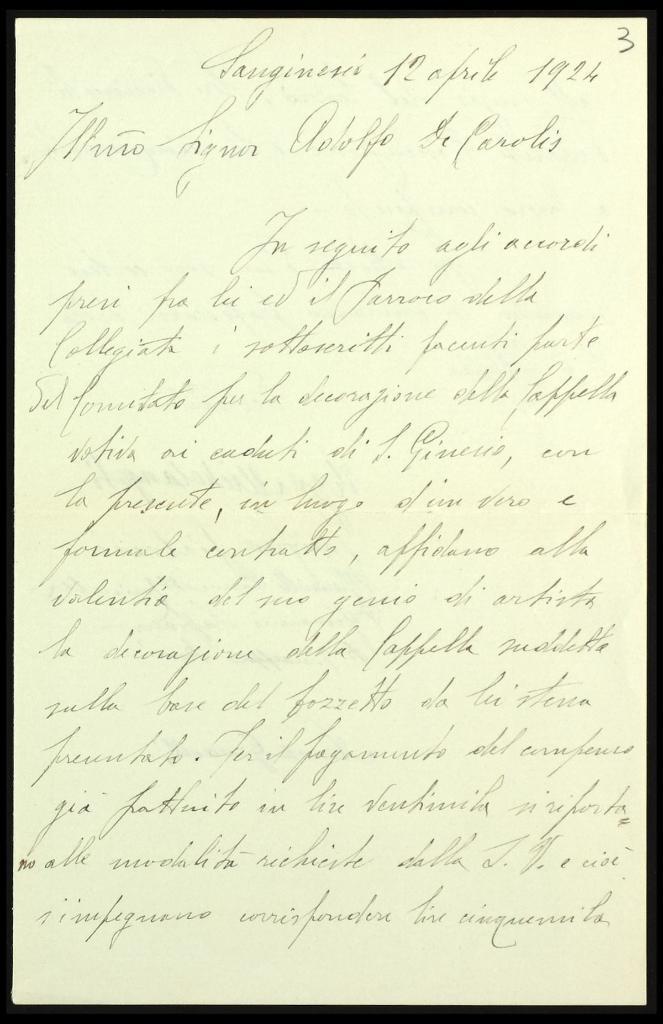 3
Sanginesio 12 aprile 1924
Illmo Signor Adolfo De Carolis
In seguito agli accordi
presi fra lei ed il Parroco della
Collegiata i sottoscritti facenti parte
del Comitato per la decorazione della Cappella
votiva ai caduti di S. Ginesio, con
la presente, in luogo d'un vero e
formale contratto, affidano alla
valentia del suo genio di artista
la decorazione della Cappella suddetta
sulla base del bozzetto da lei stesso
presentato. Per il pagamento del compenso
già pattuito in lire ventimila si riporta=
no alle modalità richieste dalla S. V. e cioè
s'impegnano corrispondere lire cinquemila